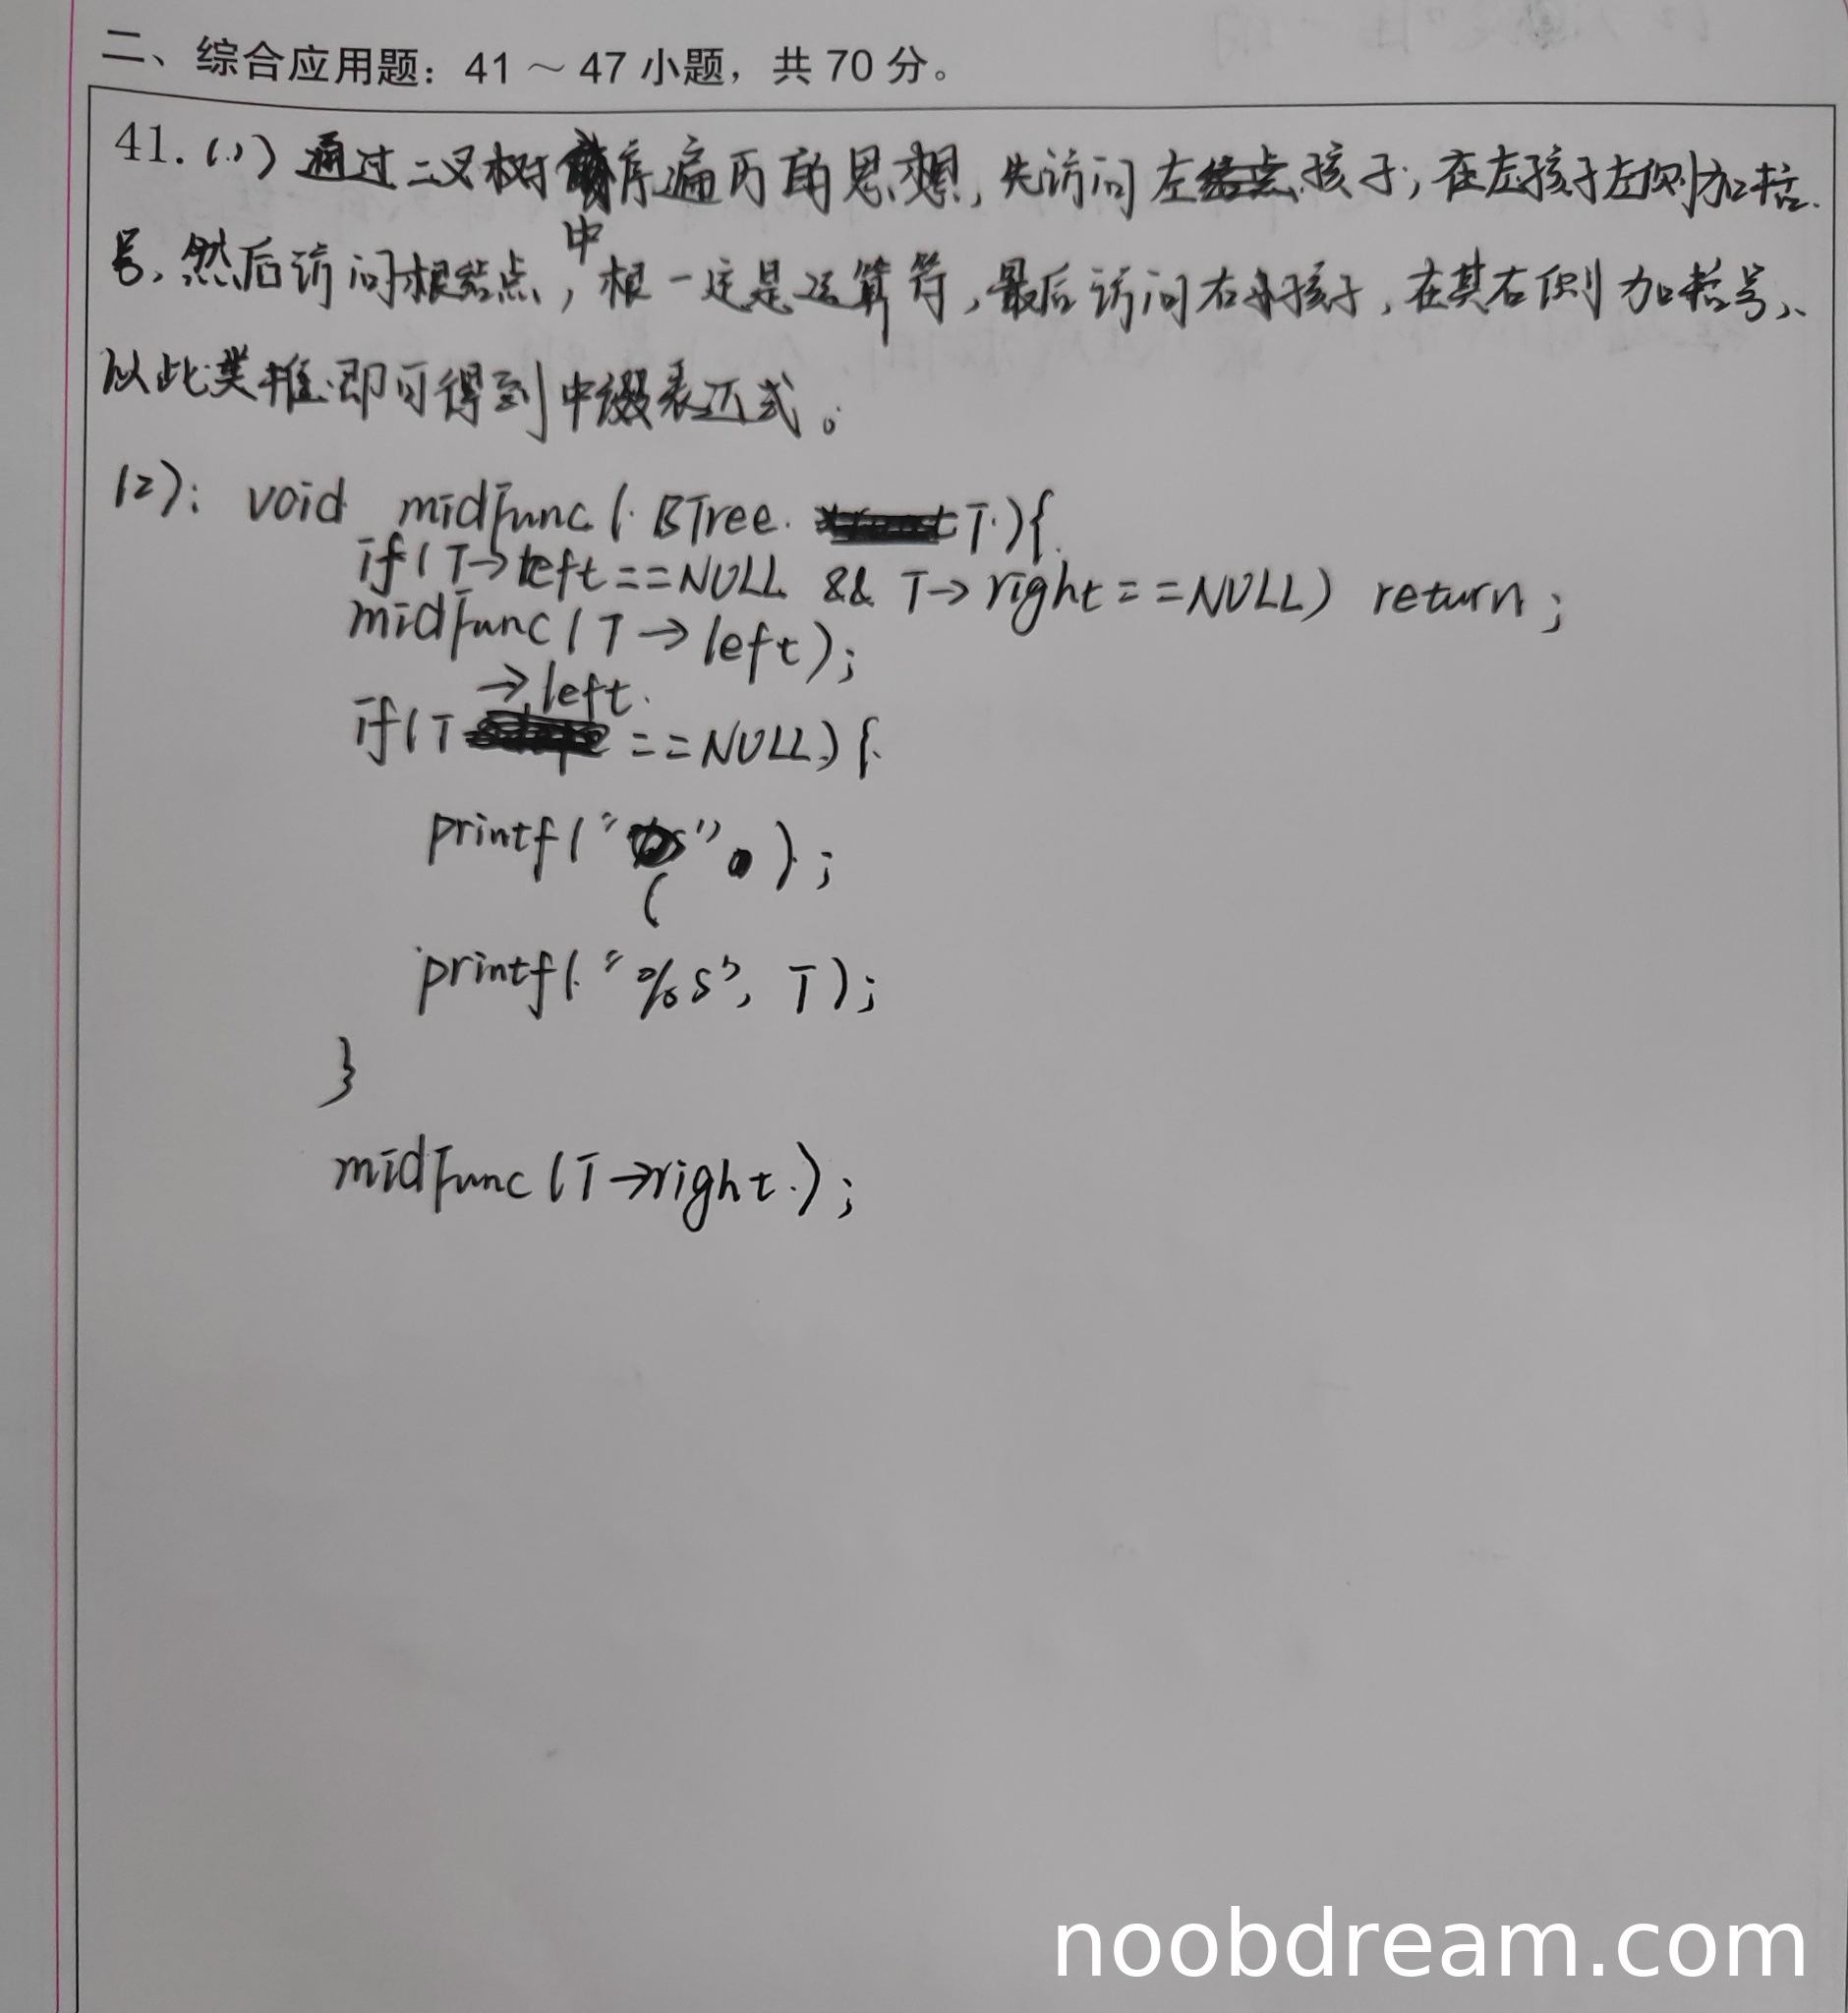 二、综合应用题：41～47小题，共70分。
41.(1)通过二叉树中序遍历的思想,先访问左孩子,在左孩子左侧加括
号,然后访问根结点,根一定是运算符,最后访问右孩子,在其右侧加括号,
以此类推即可得到中缀表达式。
(2): void midFunc(BTree T){
if(T->left==NULL && T->right==NULL) return;
midFunc(T->left);
if(T->left==NULL){
printf("(");
printf("%s", T);
}
midFunc(T->right);
noobdream.com